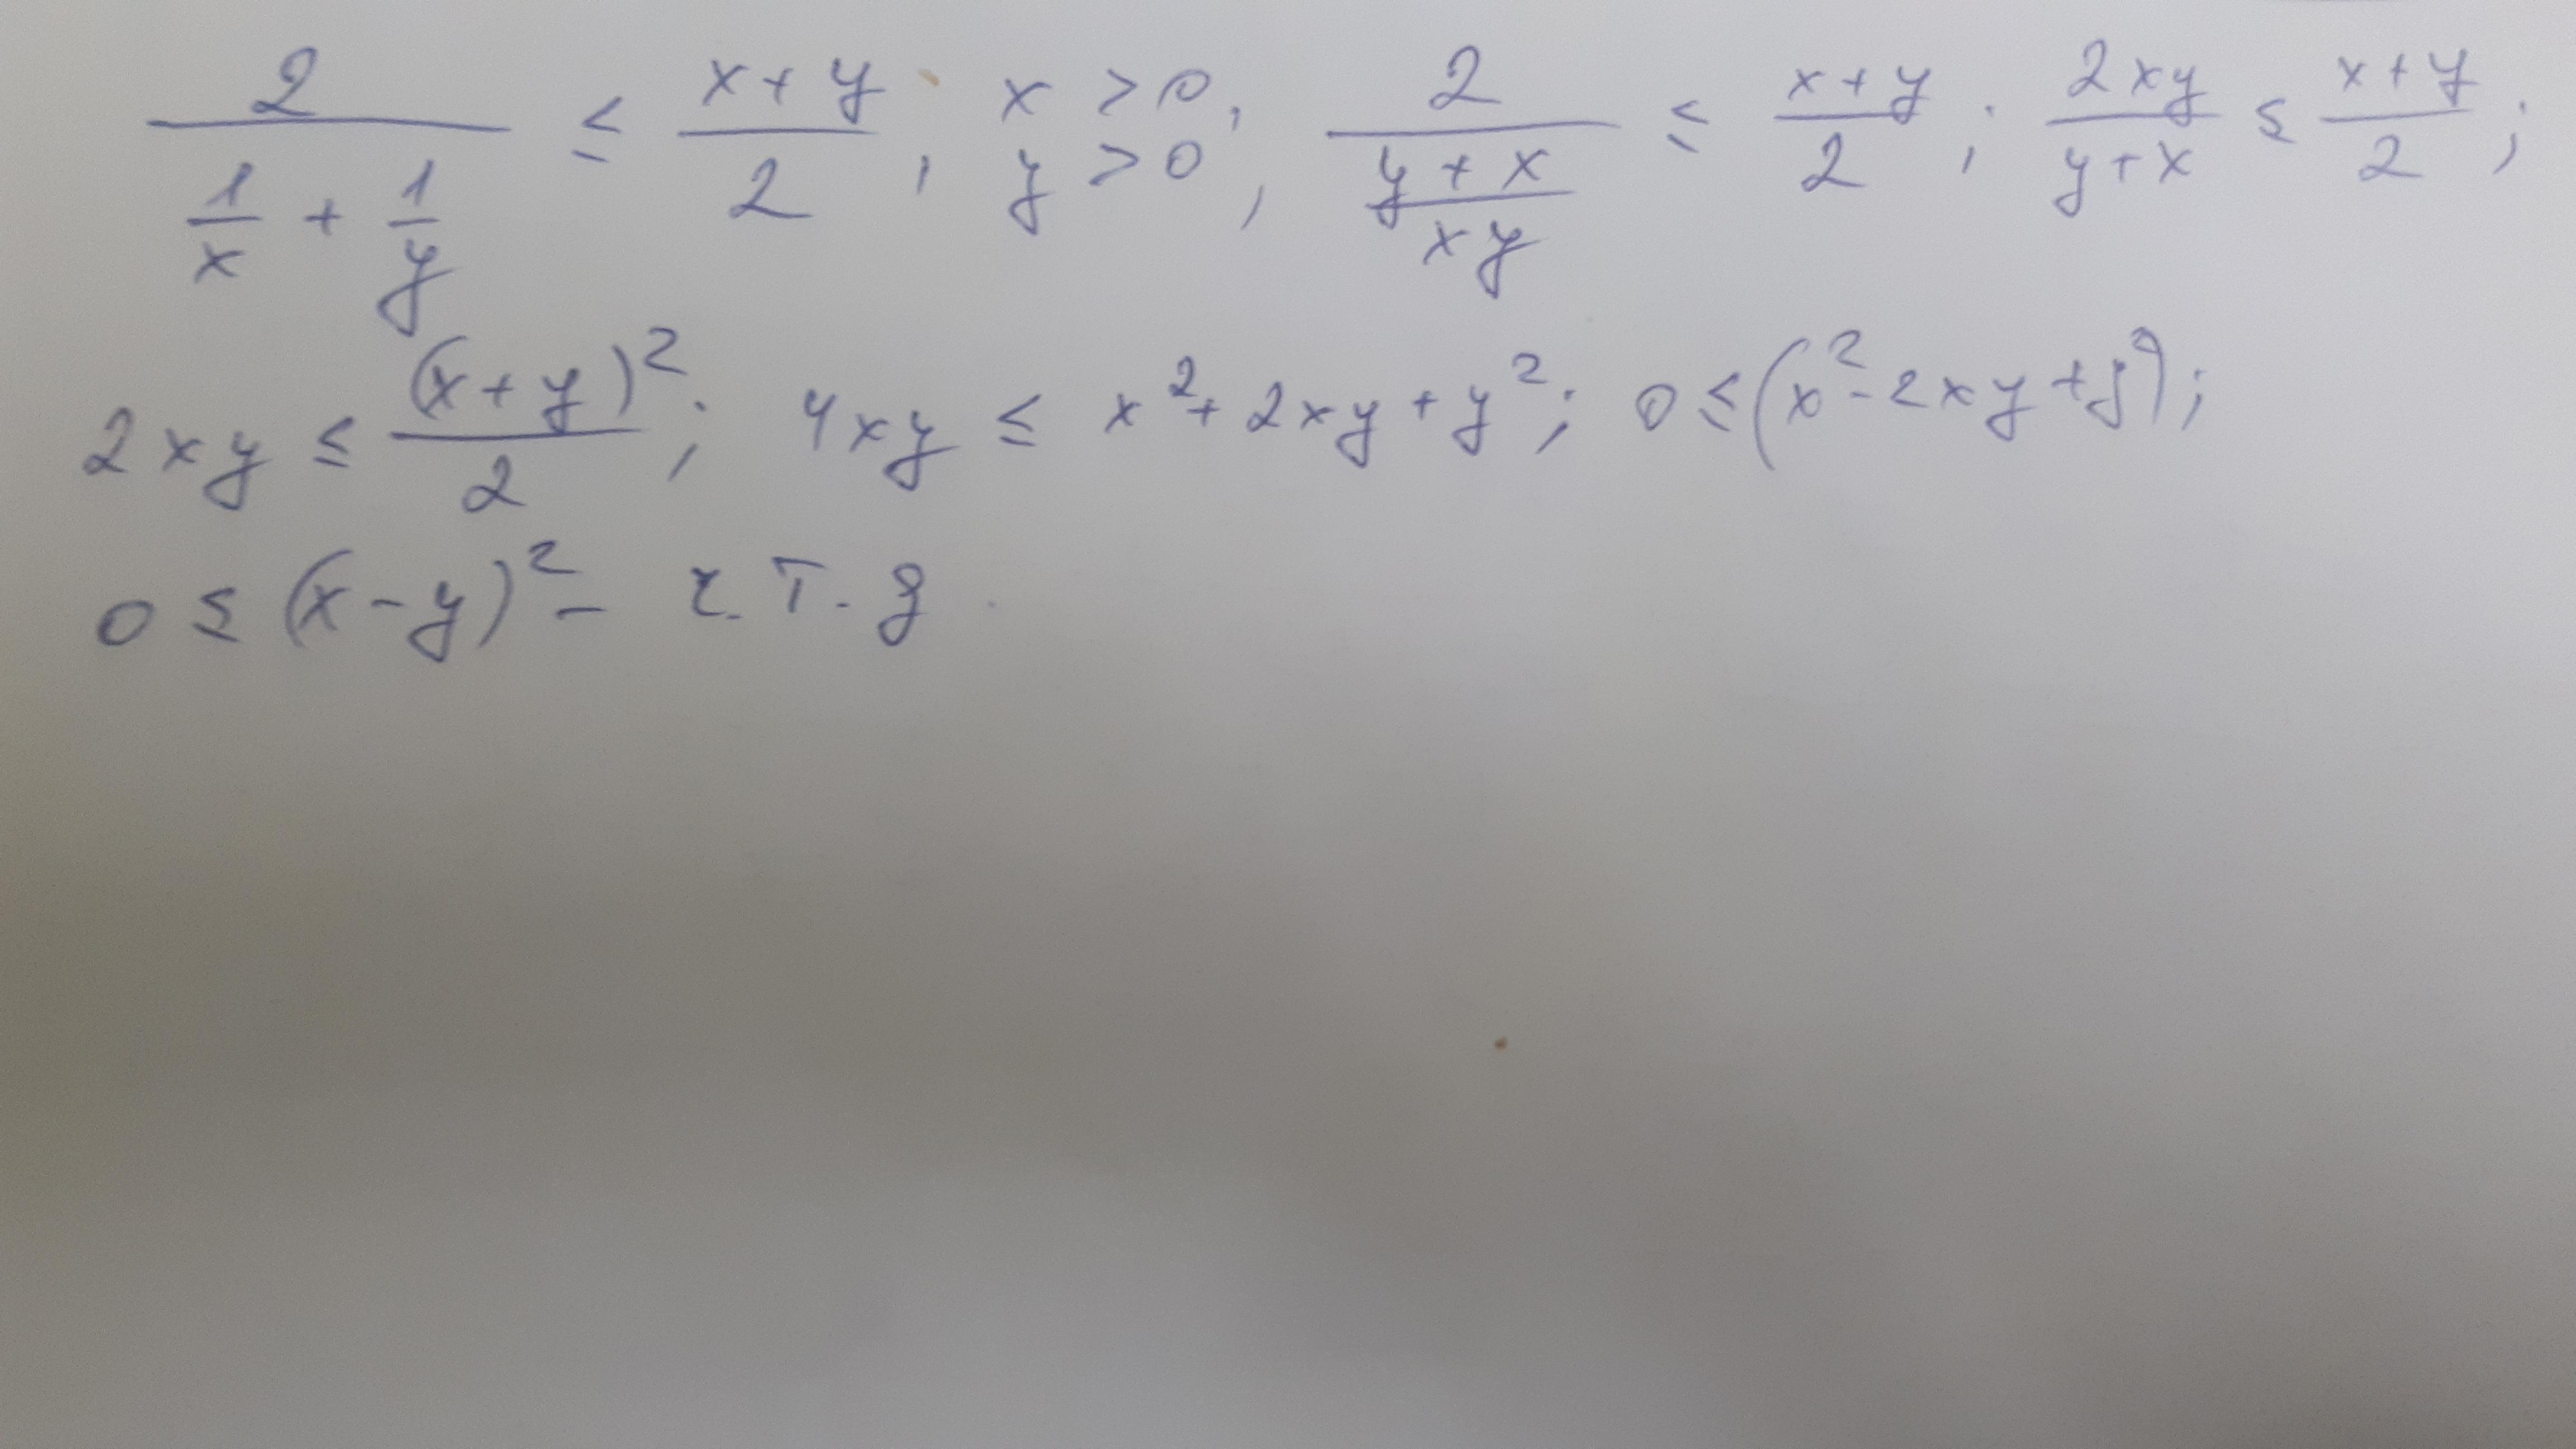 2/(1/x + 1/y) ≤ (x+y)/2, x>0, y>0, 2/((y+x)/(xy)) ≤ (x+y)/2; 2xy/(y+x) ≤ (x+y)/2;
2xy ≤ (x+y)²/2; 4xy ≤ x²+2xy+y²; 0≤(x²-2xy+y²);
0 ≤ (x-y)² - ч.т.д